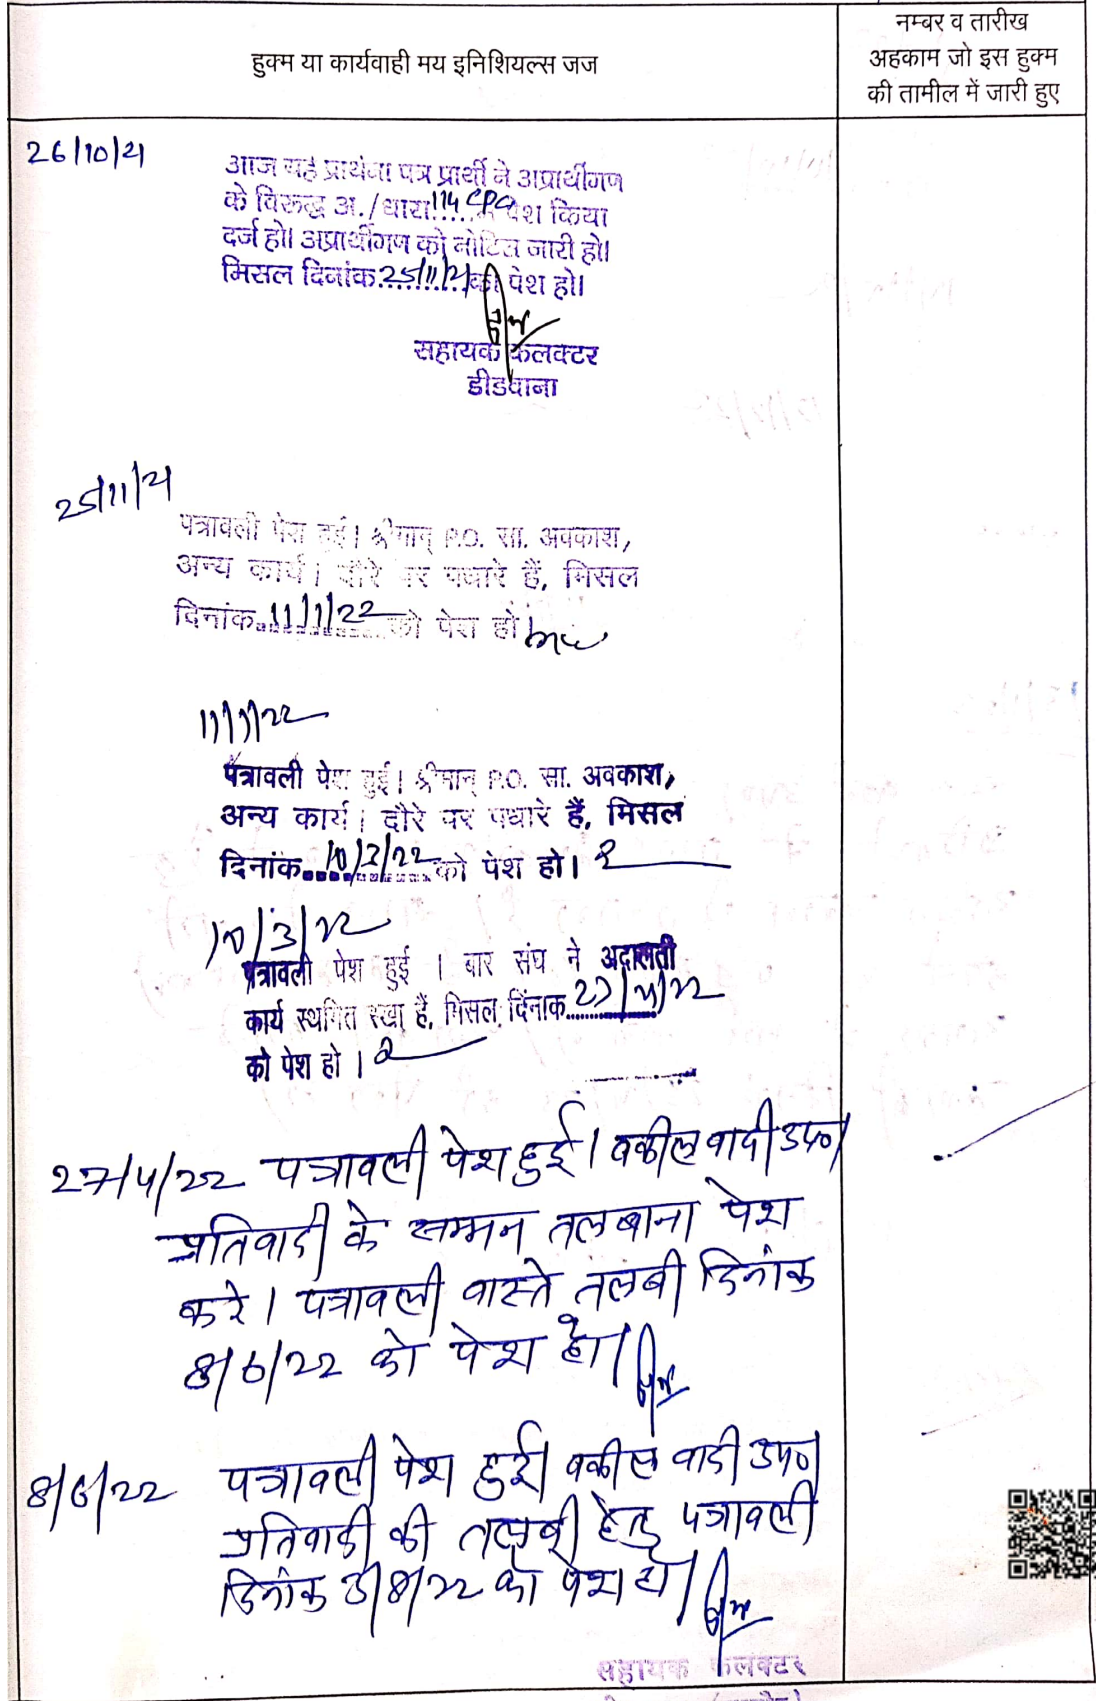 हुक्म या कार्यवाही मय इनिशियल्स जज
नम्बर व तारीख
अहकाम जो इस हुक्म
की तामील में जारी हुए
26/10/21
आज यह प्रार्थना पत्र प्रार्थी ने अप्रार्थीगण
के विरूद्ध अ./धारा 114 CPC के पेश किया
दर्ज हो। अप्रार्थीगण को नोटिस जारी हो।
मिसल दिनांक 25/11/21 को पेश हो।
सहायक कलक्टर
डीडवाना
25/11/21
पत्रावली पेश हुई। श्रीमान् P.O. सा. अवकाश,
अन्य कार्य। दौरे पर पधारे हैं, मिसल
दिनांक 11/1/22 को पेश हो
11/1/22
पत्रावली पेश हुई। श्रीमान् P.O. सा. अवकाश,
अन्य कार्य। दौरे पर पधारे हैं, मिसल
दिनांक 10/3/22 को पेश हो।
10/3/22
पत्रावली पेश हुई । बार संघ ने अदालती
कार्य स्थगित रखा हैं, मिसल दिंनाक 27/4/22
को पेश हो ।
27/4/22 पत्रावली पेश हुई। वकील वादी उप०।
प्रतिवादी के सम्मन तलबाना पेश
करे। पत्रावली वास्ते तलबी दिनांक
8/6/22 को पेश हो।
8/6/22 पत्रावली पेश हुई। वकील वादी उप०।
प्रतिवादी की तलबी हेतु पत्रावली
दिनांक 3/8/22 को पेश हो।
सहायक कलक्टर